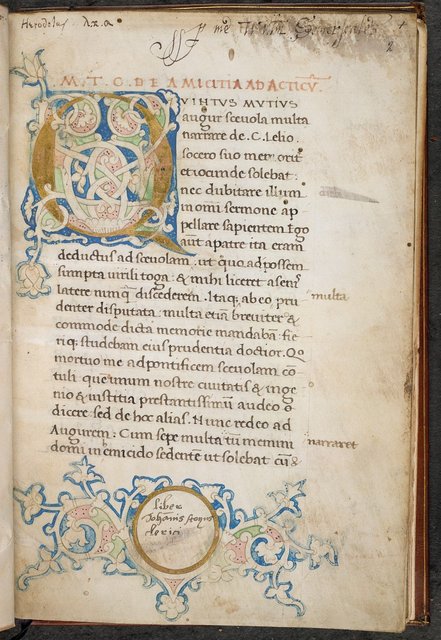 Herodotus
M. T. C. DE AMICITIA AD ACTICV̄.
QVINTVS MVTIVS
augur scęuola multa
narrare de .C. Lelio .
socero suo memorit
et iocunde solebat :
nec dubitare illum
in omni sermone ap
pellare sapientem. Ego
aut̄ a patre ita eram
deductus ad scęuolam . ut quo ad possem
sumpta uirili toga : & mihi liceret a seni
latere nunq̄ discederem . Itaq; ab eo pru
denter disputata . multa etiā breuiter &
commode dicta memorie mandabā : fie
riq; studebam eius prudentia doctior. Qo
mortuo me ad pontificem scęuolam cō
tuli . que unum nostre ciuitatis & inge
nio & iustitia prestantissimū audeo
dicere sed de hoc alias. Nunc redeo ad
Augurem : Cum sepe multa tū memini
domi in emicido sedentē ut solebat cū &
multa
narraret
liber
Johānis
clerici